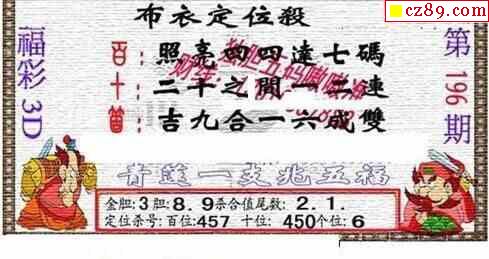 cz89.com
布衣定位殺
福彩3D
第196期
百：照亮四四達七碼
十：二千之間一二連
個：吉九合一六成雙
青蓮一支兆五福
金胆:3胆:8.9杀合值尾数: 2.1.
定位杀号:百位:457 十位: 450个位:6